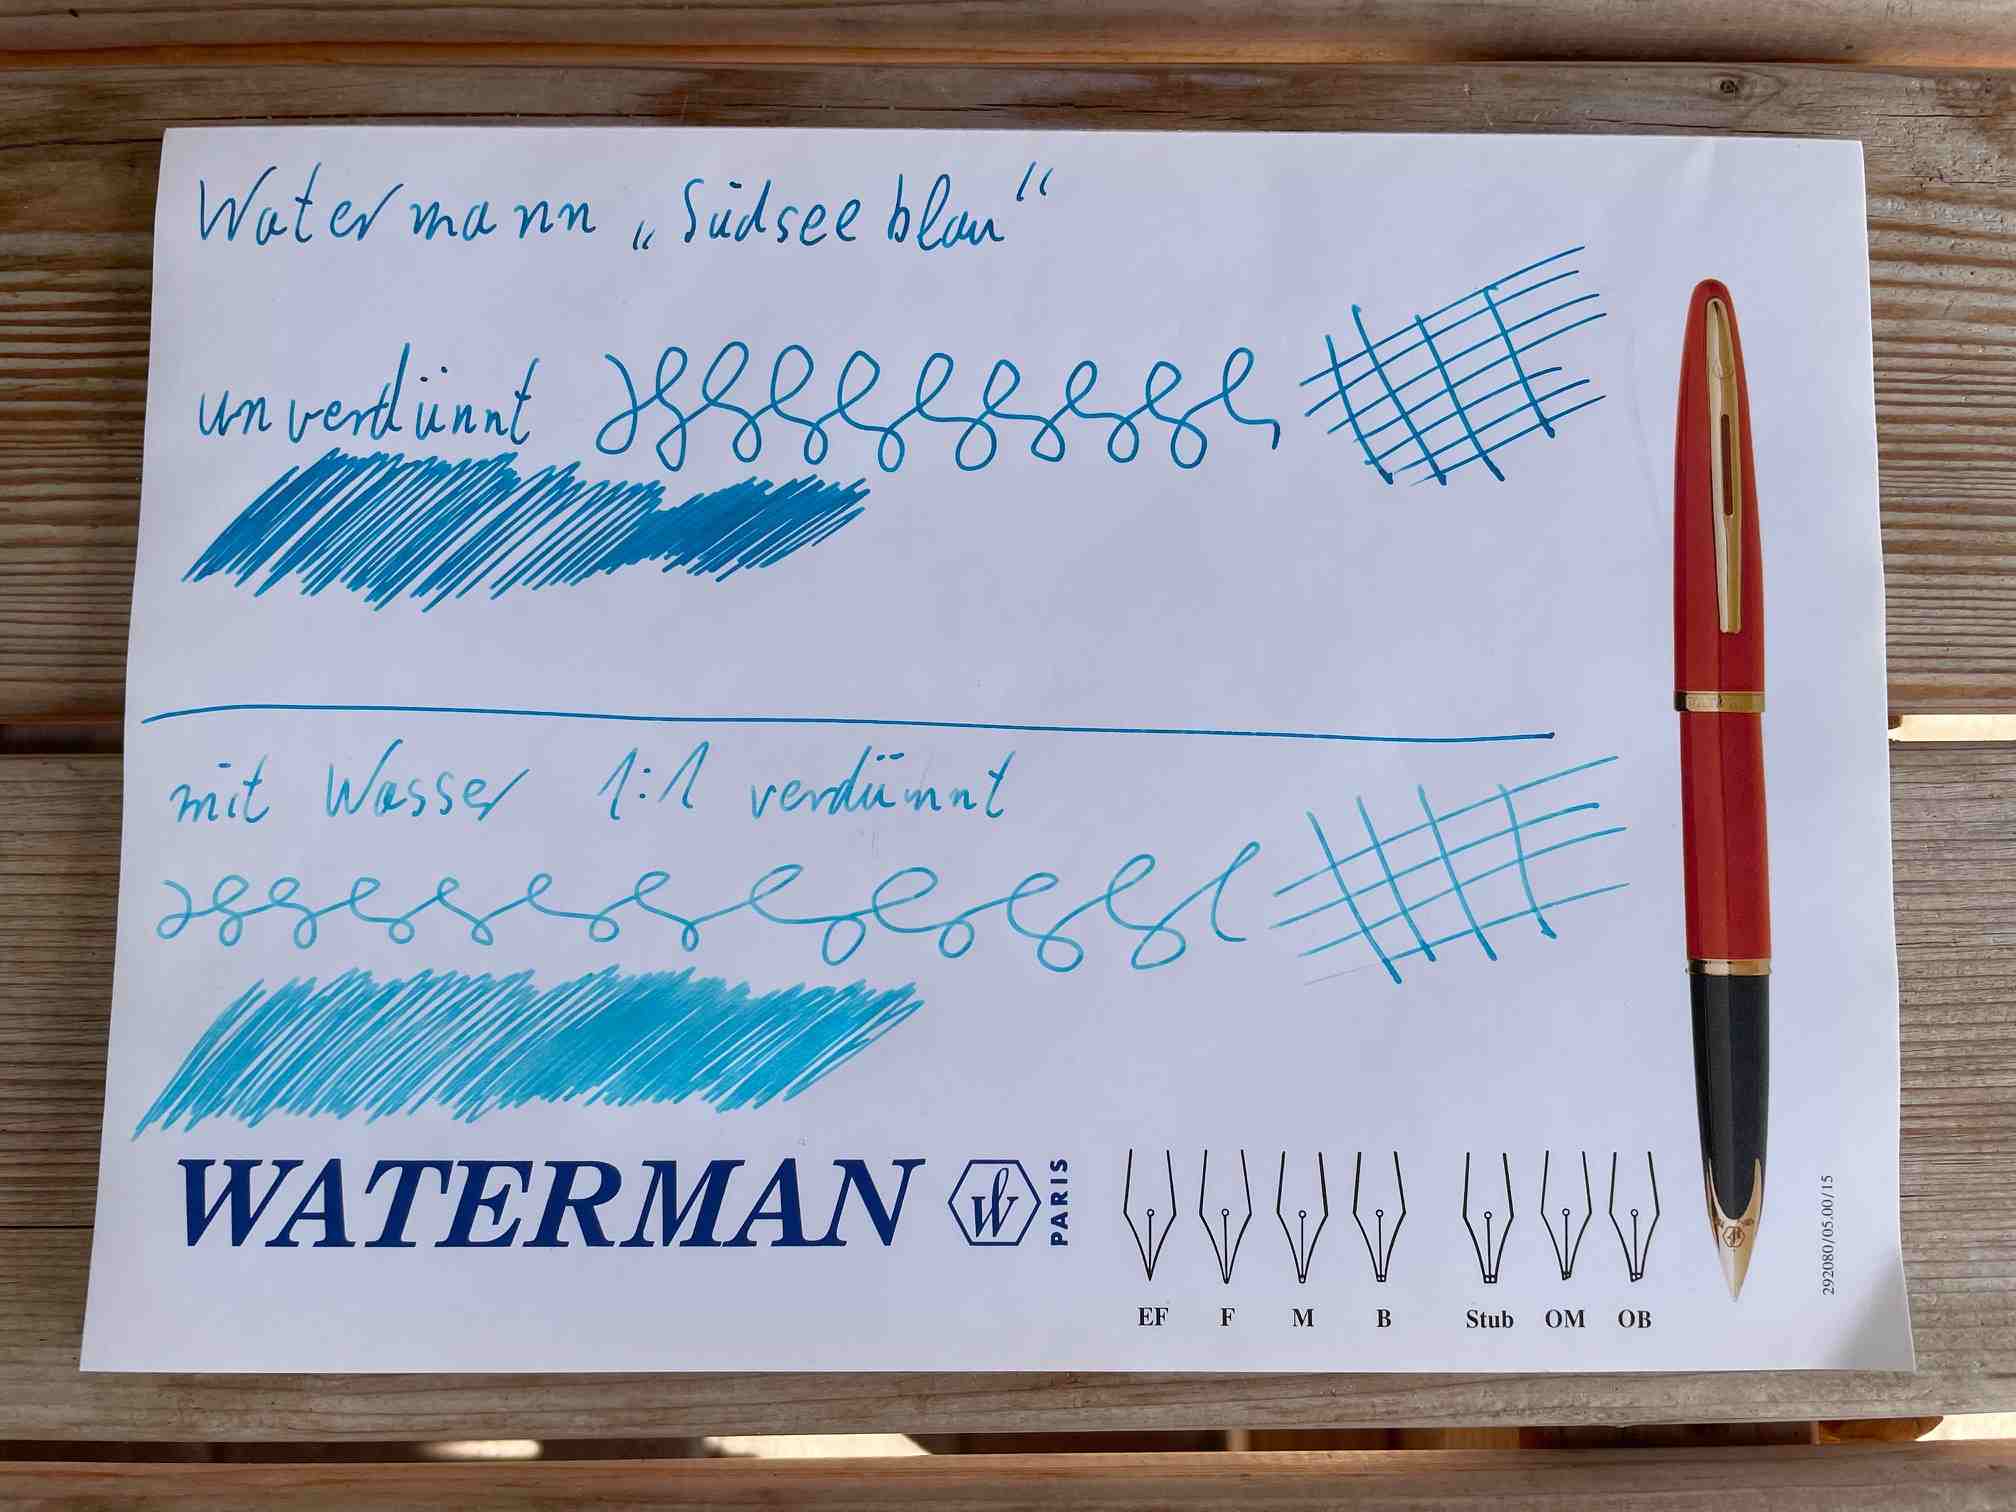 Watermann „Südseeblau“
unverdünnt
mit Wasser 1:1 verdünnt
WATERMAN W PARIS
EF F M B Stub OM OB
292080/05.00/15